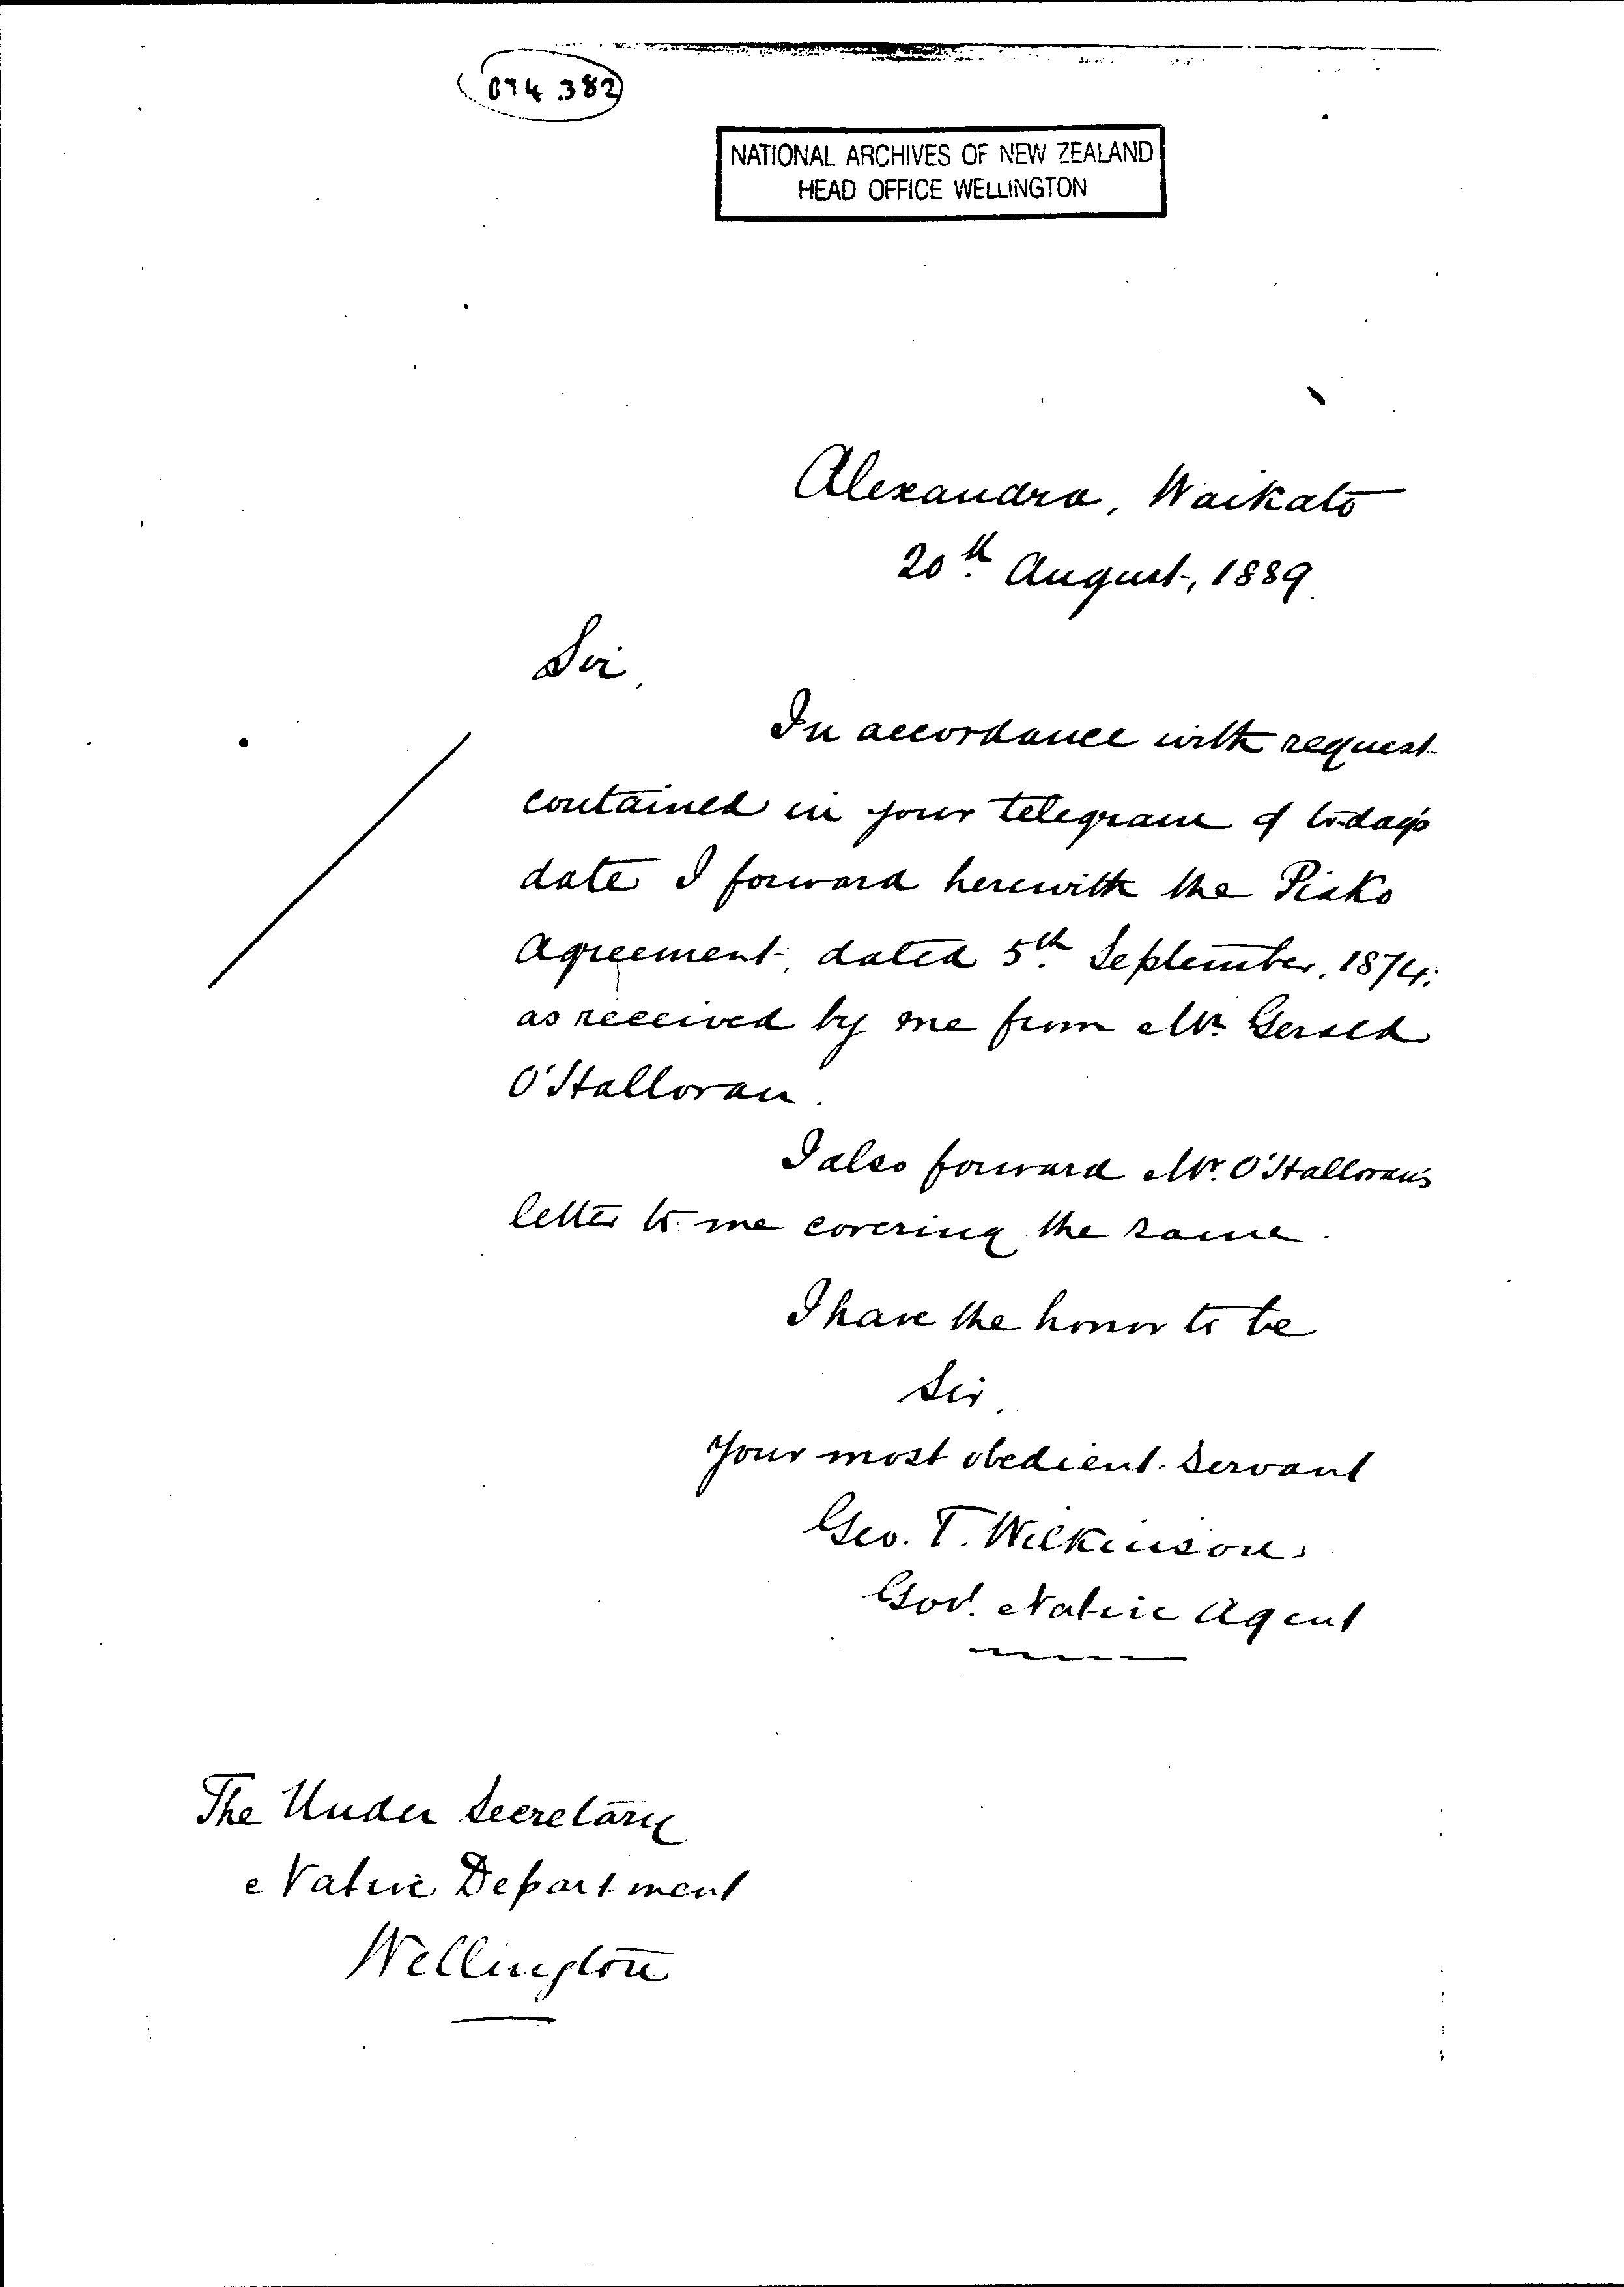 874.382
NATIONAL ARCHIVES OF NEW ZEALAND
HEAD OFFICE WELLINGTON
Alexandra, Waikato
20th August, 1889.
Sir,
In accordance with request
contained in your telegram of to-day's
date I forward herewith the Piako
Agreement, dated 5th September, 1874.
as received by me from Mr. Gerald
O'Halloran.
I also forward Mr. O'Halloran's
letter to me covering the same.
I have the honor to be
Sir,
Your most obedient Servant
Geo. T. Wilkinson
Govt. Native Agent
The Under Secretary
Native Department
Wellington